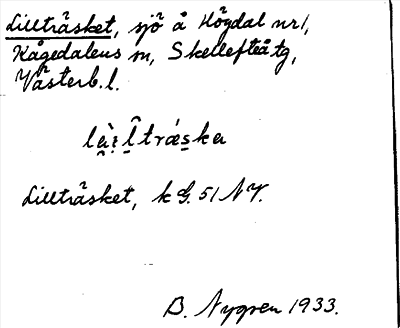 Lillträsket, sjö å Högdal nr 1,
Kågedalens m, Skellefteå tg,
Västerb. l.
Lillträsket, k G. 51 NV.
B. Nygren 1933.